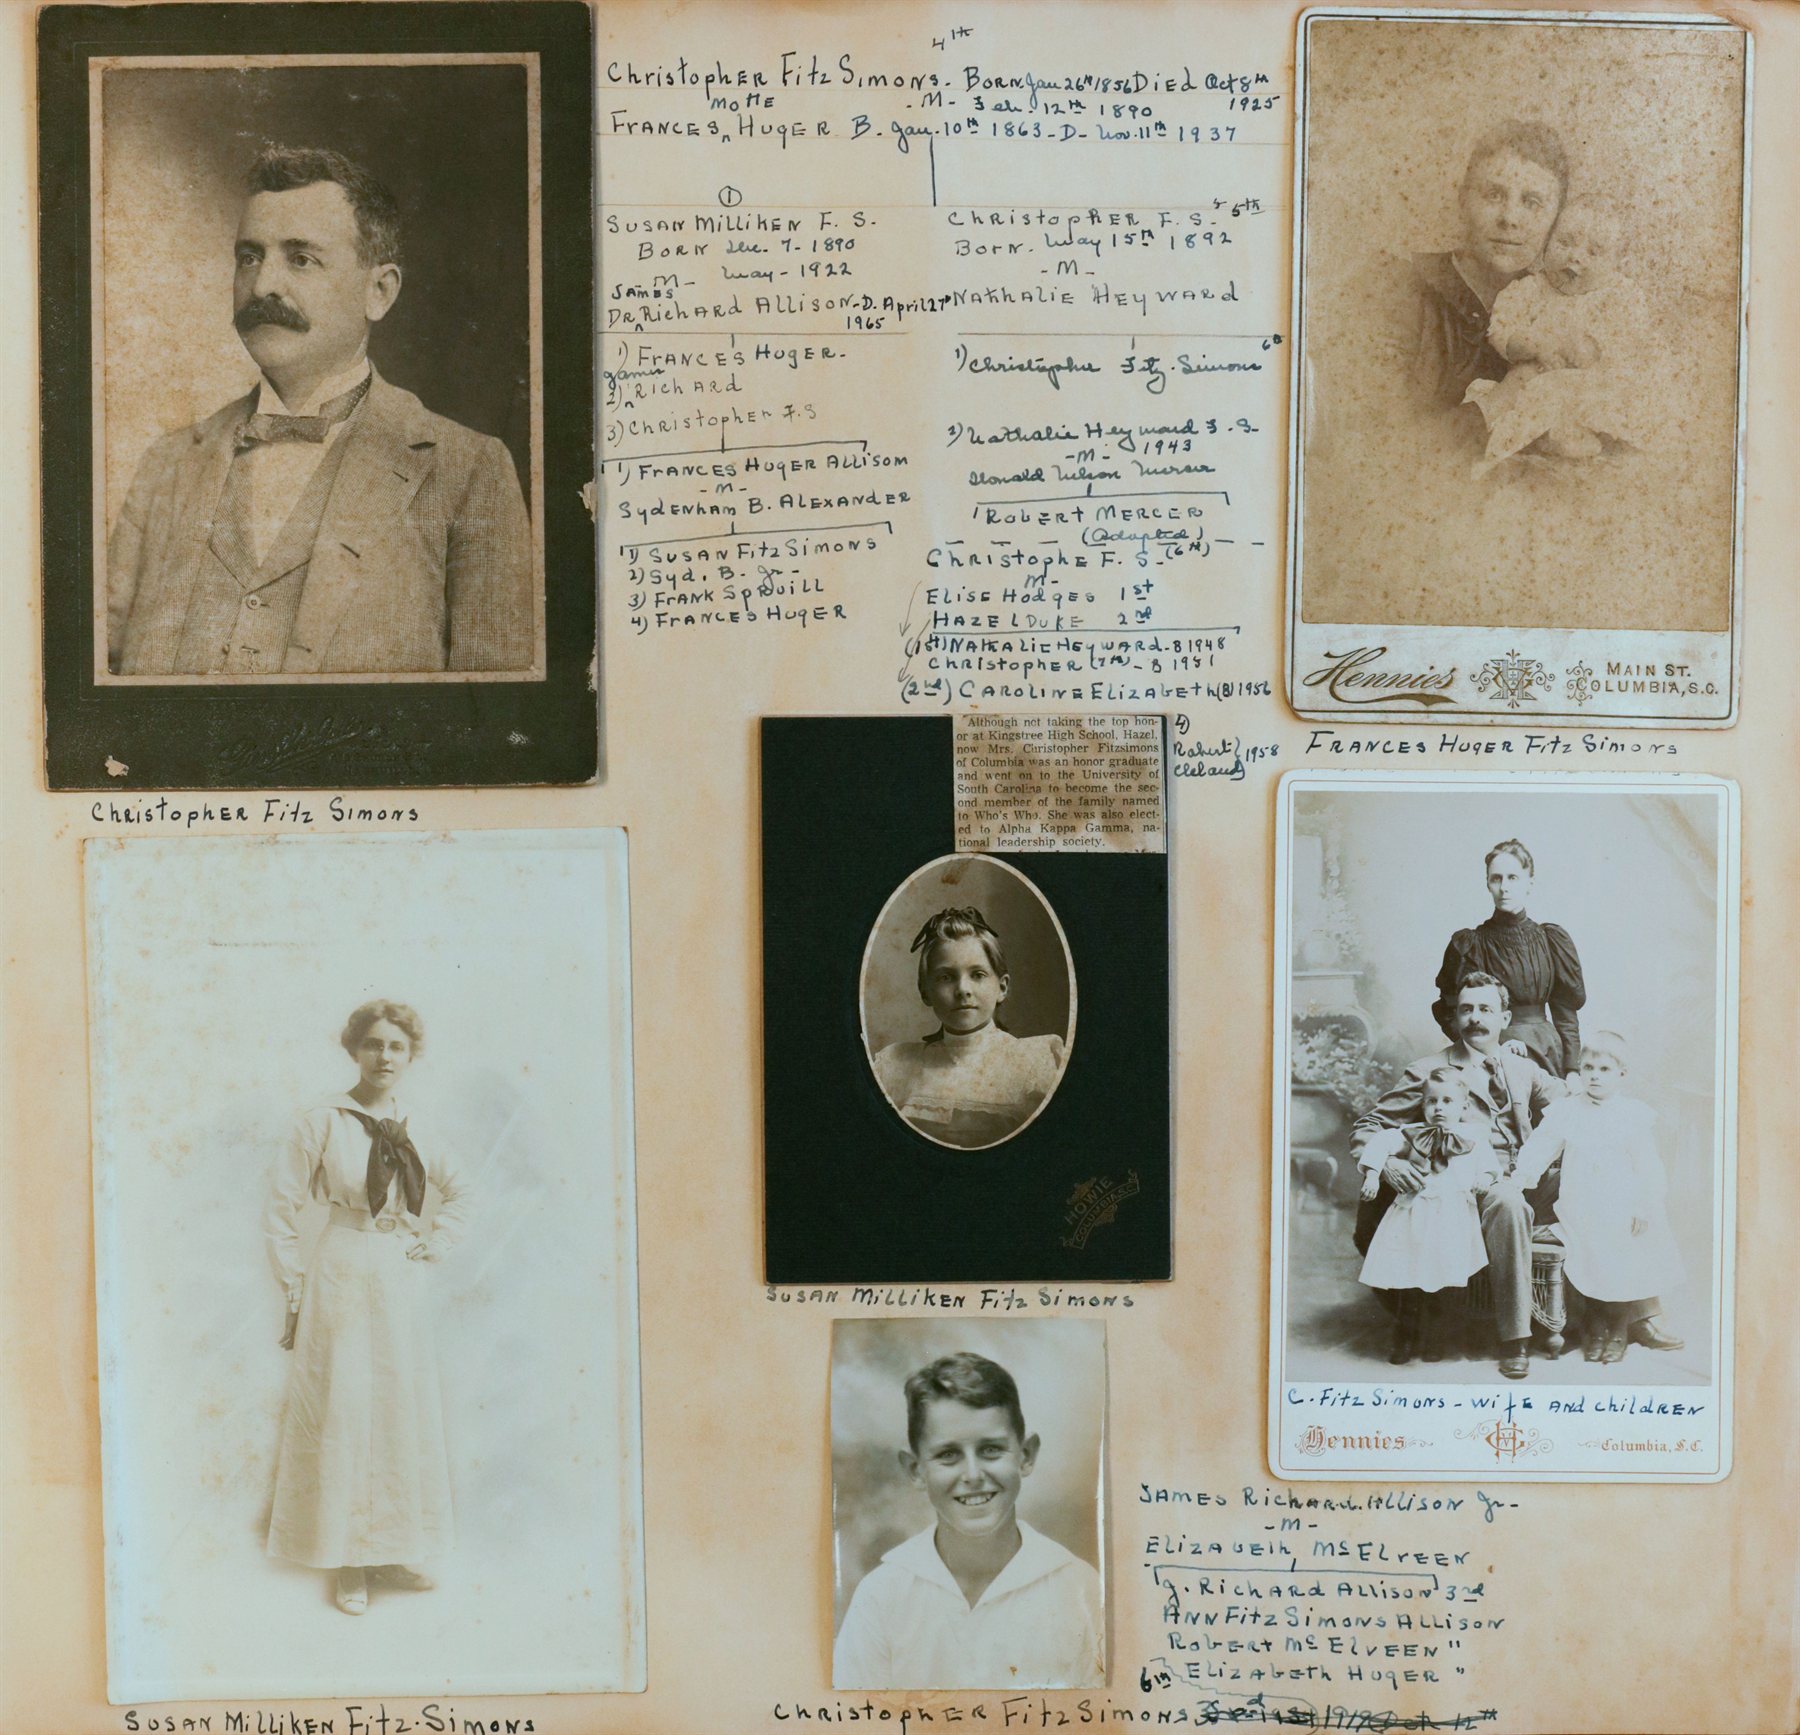 4th
Christopher Fitz Simons. Born Jan 26th 1856 Died Oct 8th
1925
Motte
-M- Feb. 12th 1890
Frances ^ Huger B. Jan. 10th 1863 - D - Nov. 11th 1937
①
Susan Milliken F. S.
Born Dec. 7 - 1890
-M- May - 1922
James
Dr ^ Richard Allison - D. April 27th
1965
1) Frances Huger -
James
2) ^ Richard
3) Christopher F. S
1) Frances Huger Allison
-M-
Sydenham B. Alexander
1) Susan Fitz Simons
2) Syd. B. Jr -
3) Frank Spruill
4) Frances Huger
Christopher F. S. 5th
Born. May 15th 1892
-M-
Nathalie Heyward
1) Christopher Fitz. Simons 6th
2) Nathalie Heyward F. S-
-M- 1943
Donald Nelson Mercer
1 Robert Mercer
(Adopted)
Christophe F. S. (6th)
M-
Elise Hodges 1st
Hazel Duke 2nd
(1st) Nathalie Heyward - B 1948
Christopher (7th) - B 1951
(2nd) Caroline Elizabeth (B) 1956
4)
Robert } 1958
Cleland
Although not taking the top hon-
or at Kingstree High School, Hazel,
now Mrs. Christopher Fitzsimons
of Columbia was an honor graduate
and went on to the University of
South Carolina to become the sec-
ond member of the family named
to Who's Who. She was also elect-
ed to Alpha Kappa Gamma, na-
tional leadership society.
Hennies
MAIN ST.
COLUMBIA, S.C.
Frances Huger Fitz Simons
Christopher Fitz Simons
HOWIE
COLUMBIA S.C.
Susan Milliken Fitz Simons
C. Fitz Simons - wife and children
Hennies
Columbia, S.C.
James Richard Allison Jr -
-M-
Elizabeth McElveen
J. Richard Allison 3rd
Ann Fitz Simons Allison
Robert McElveen "
Elizabeth Huger "
6th
Christopher Fitz Simons 1919 Oct 12th
Susan Milliken Fitz. Simons